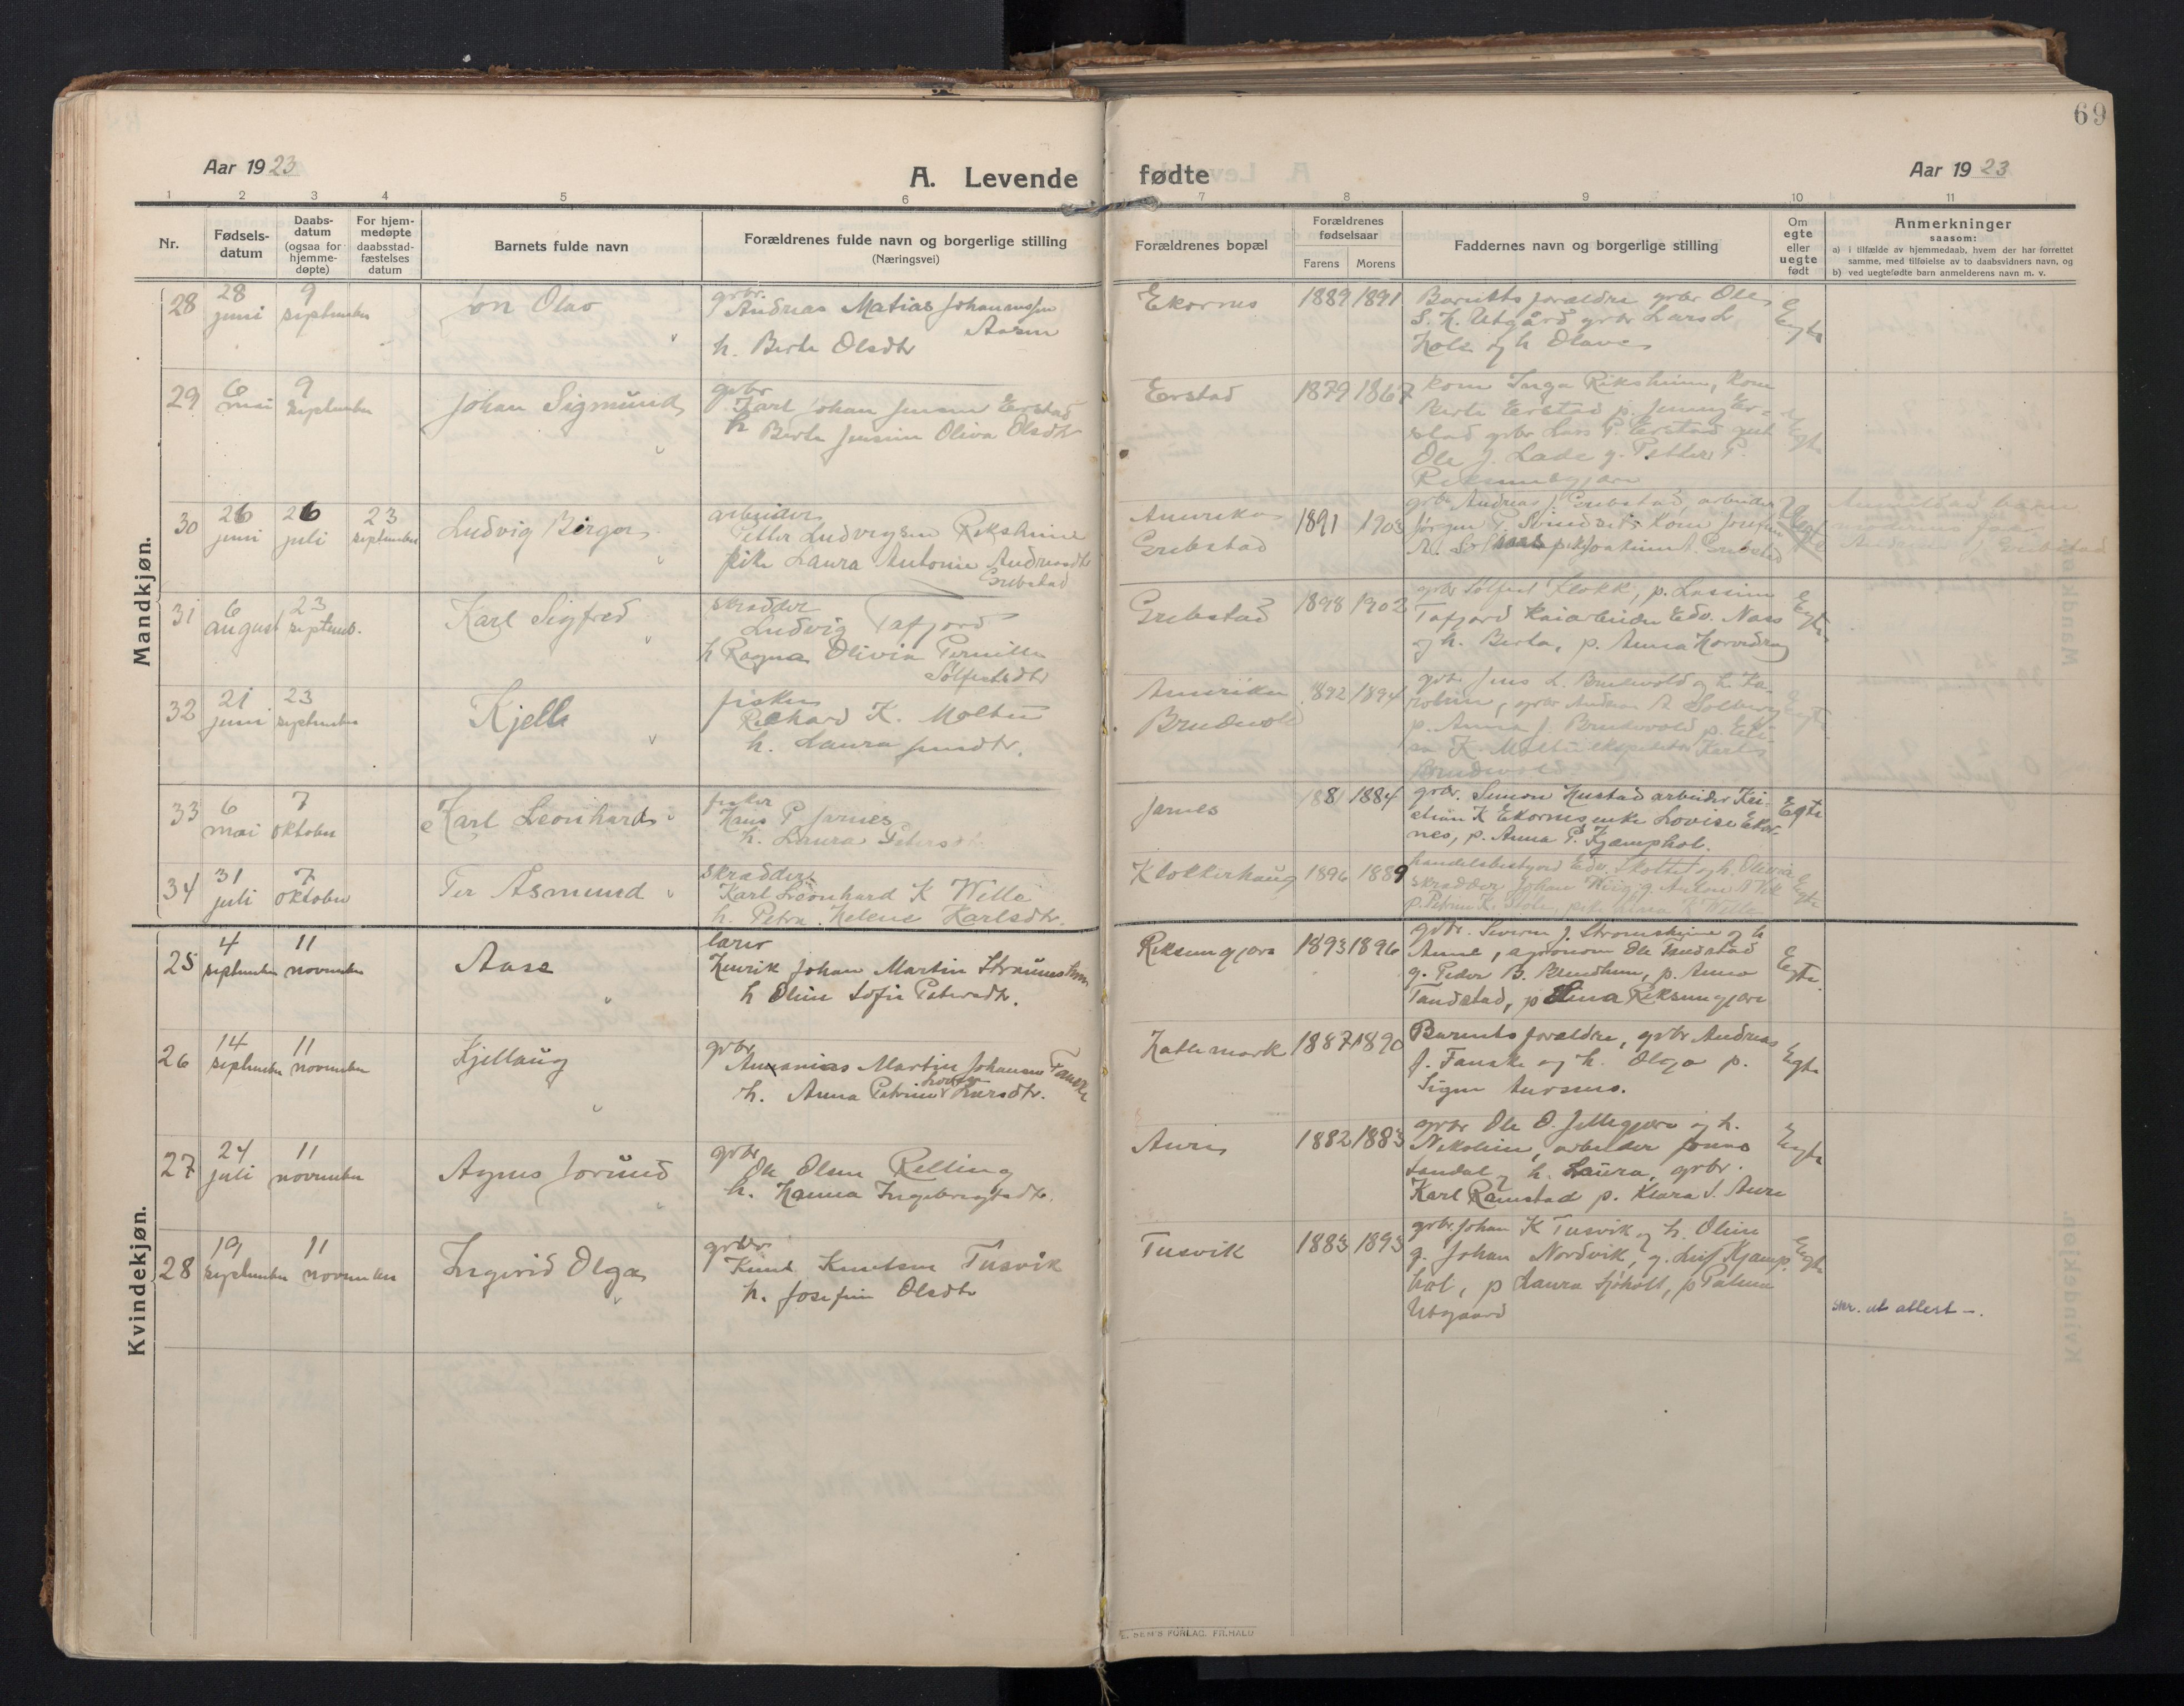 69
Aar 1923
A. Levende fødte
Aar 1923
1 2 3 4 5 6 7 8 9 10 11
Nr.
Fødsels-
datum
Daabs-
datum
(ogsaa for
hjemme-
døpte)
For hjem-
medøpte
daabsstad-
fæstelses
datum
Barnets fulde navn
Forældrenes fulde navn og borgerlige stilling
(Næringsvei)
Forældrenes bopæl
Forældrenes
fødselsaar
Farens Morens
Faddernes navn og borgerlige stilling
Om
egte
eller
uegte
født
Anmerkninger
saasom:
a) i tilfælde av hjemmedaab, hvem der har forrettet
samme, med tilføielse av to daabsvidners navn, og
b) ved uegtefødte barn anmelderens navn m. v.
Mandkjøn.
28
28
juni
9
september
Jon Olav
grbr.
Andreas Matias Johannessen
Aasen
h. Berte Olsdtr
Ekornes
1889 1891
Barnets forældre grbr Ole
S. K. Utgård grbr Lars L
Hole og h Olave
Egte
29
6
mai
9
september
Johan Sigmund
grbr
Karl Johan Jensen Erstad
h Berte Jensine Oliva Olsdtr
Erstad
1879 1867
Kone Inga Riksheim, Kone
Berte Erstad p. Jenny Er-
stad grbr Lars P. Erstad gut
Ole J. Lade g. Petter P.
Egte
30
26
juni
26
juli
23
september
Ludvig Birger
arbeider
Petter Ludvigsen Riksheim
pike Laura Antonie Andreasdtr
Grebstad
Amerika
Grebstad
1891 1903
grbr Andreas J Grebstad, arbeider
Jørgen P. Kone Josefine
Uegte
Anmeldad
moderens far
Andreas J Grebstad
31
6
august
23
septemb.
Karl Sigfred
skrædder
Ludvig Tafjord
h Ragna Olivia Pernille
Sølfestsdtr
Grebstad
1898 1902
grbr Sølfest Klokk, p. Lassine
Tafjord Kaiarbeider Edv. Næss
og h. Berta, p. Anna
Egte
32
21
juni
23
september
Kjell
fisker
Rikhard K. Molten
h. Laura Jensdtr.
Amerika
Brudevold
1892 1894
grbr Jens L. Brudevold og h. Ka-
roline, grbr Andreas A Solberg
p. Anna J. Brudevold p. Eli-
sa K. Molten
Brudevold
Egte
33
6
mai
7
oktober
Karl Leonhard
fisker
Hans P Jarnes
h. Laura Petersdt
Jarnes
1881 1884
grbr. Simon Hustad arbeider Kri-
stian K Ekornes enke Lovise Ekor-
nes, p. Anna P. Kjæmphol.
Egte
34
31
juli
7
oktober
Per Asmund
skrædder
Karl Leonhard K Wille
h. Petra Helene Karlsdtr.
Klokkerhaug
1896 1889
handelsbestyrer Edv. Skottet og h. Olivia
skrædder Johan Wiig g. Anton A Vik
p. Petrine K. Hole, pike Anna K Wille
Egte
Kvindekjøn.
25
4
september
11
november
Aase
lærer
Henrik Johan Martin Strømsheim
h Oline Sofie Petersdtr.
Riksemgjære
1893 1896
grbr. Severin J. Strømsheim og h
Anne, agronom Ole Tandstad
g. Peder B. Blindheim, p. Anna
Tandstad, p Elina Riksemgjære
Egte
26
14
september
11
november
Kjellaug
grbr
Ananias Martin Johansen Fauske
h. Anna Petrine Lovise Larsdtr.
Hattemark
1887 1890
Barnets forældre, grbr Andreas
J. Fauske og h. Olga p.
Signe Aursnes.
Egte
27
24
juli
11
november
Agnes Jorund
grbr
Ole Olsen Relling
h. Hanna Ingebrigtsdtr.
Aure
1882 1883
grbr Ole O. Jellegjære og h.
Nikoline, arbeider Jonas
Landal og h. Laura, grbr.
Karl Ramstad p. Klara S. Aure
Egte
28
19
september
11
november
Ingerid Olga
grbr
Knut Knutsen Tusvik
h. Josefine Olsdtr
Tusvik
1883 1893
grbr. Johan K Tusvik og h. Oline
g. Johan Nordvik, g. Leif Kjæmp-
hol, p Laura Sjøholt, p Paline
Utgaard
Egte
skr. ut attest –.
E. SEM'S FORLAG, FR.HALD